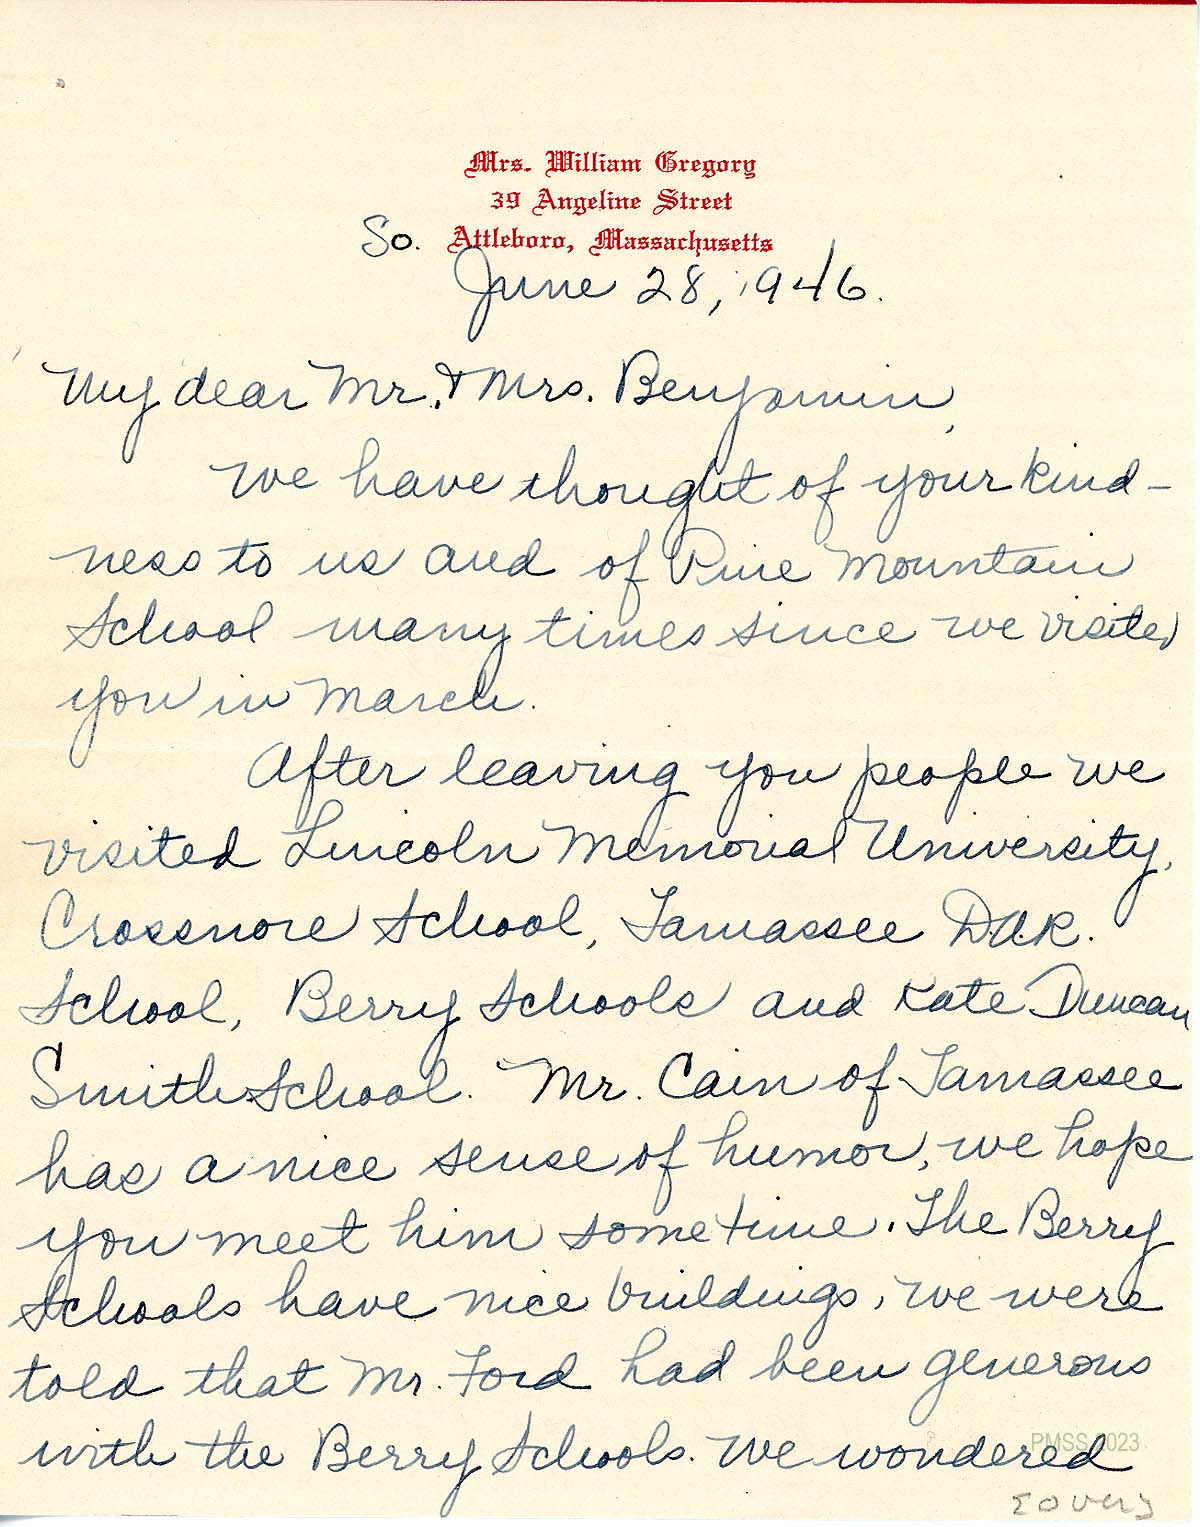 Mrs. William Gregory
39 Angeline Street
So. Attleboro, Massachusetts
June 28, 1946.
My dear Mr. & Mrs. Benjamin,
We have thought of your kind-
ness to us and of Pine Mountain
School many times since we visited
you in March.
After leaving you people we
visited Lincoln Memorial University,
Crossnore School, Tamassee D.A.R.
School, Berry Schools and Kate Duncan
Smith School. Mr. Cain of Tamassee
has a nice sense of humor, we hope
you meet him sometime. The Berry
Schools have nice buildings, we were
told that Mr. Ford had been generous
with the Berry Schools. We wondered
PMSS 2023